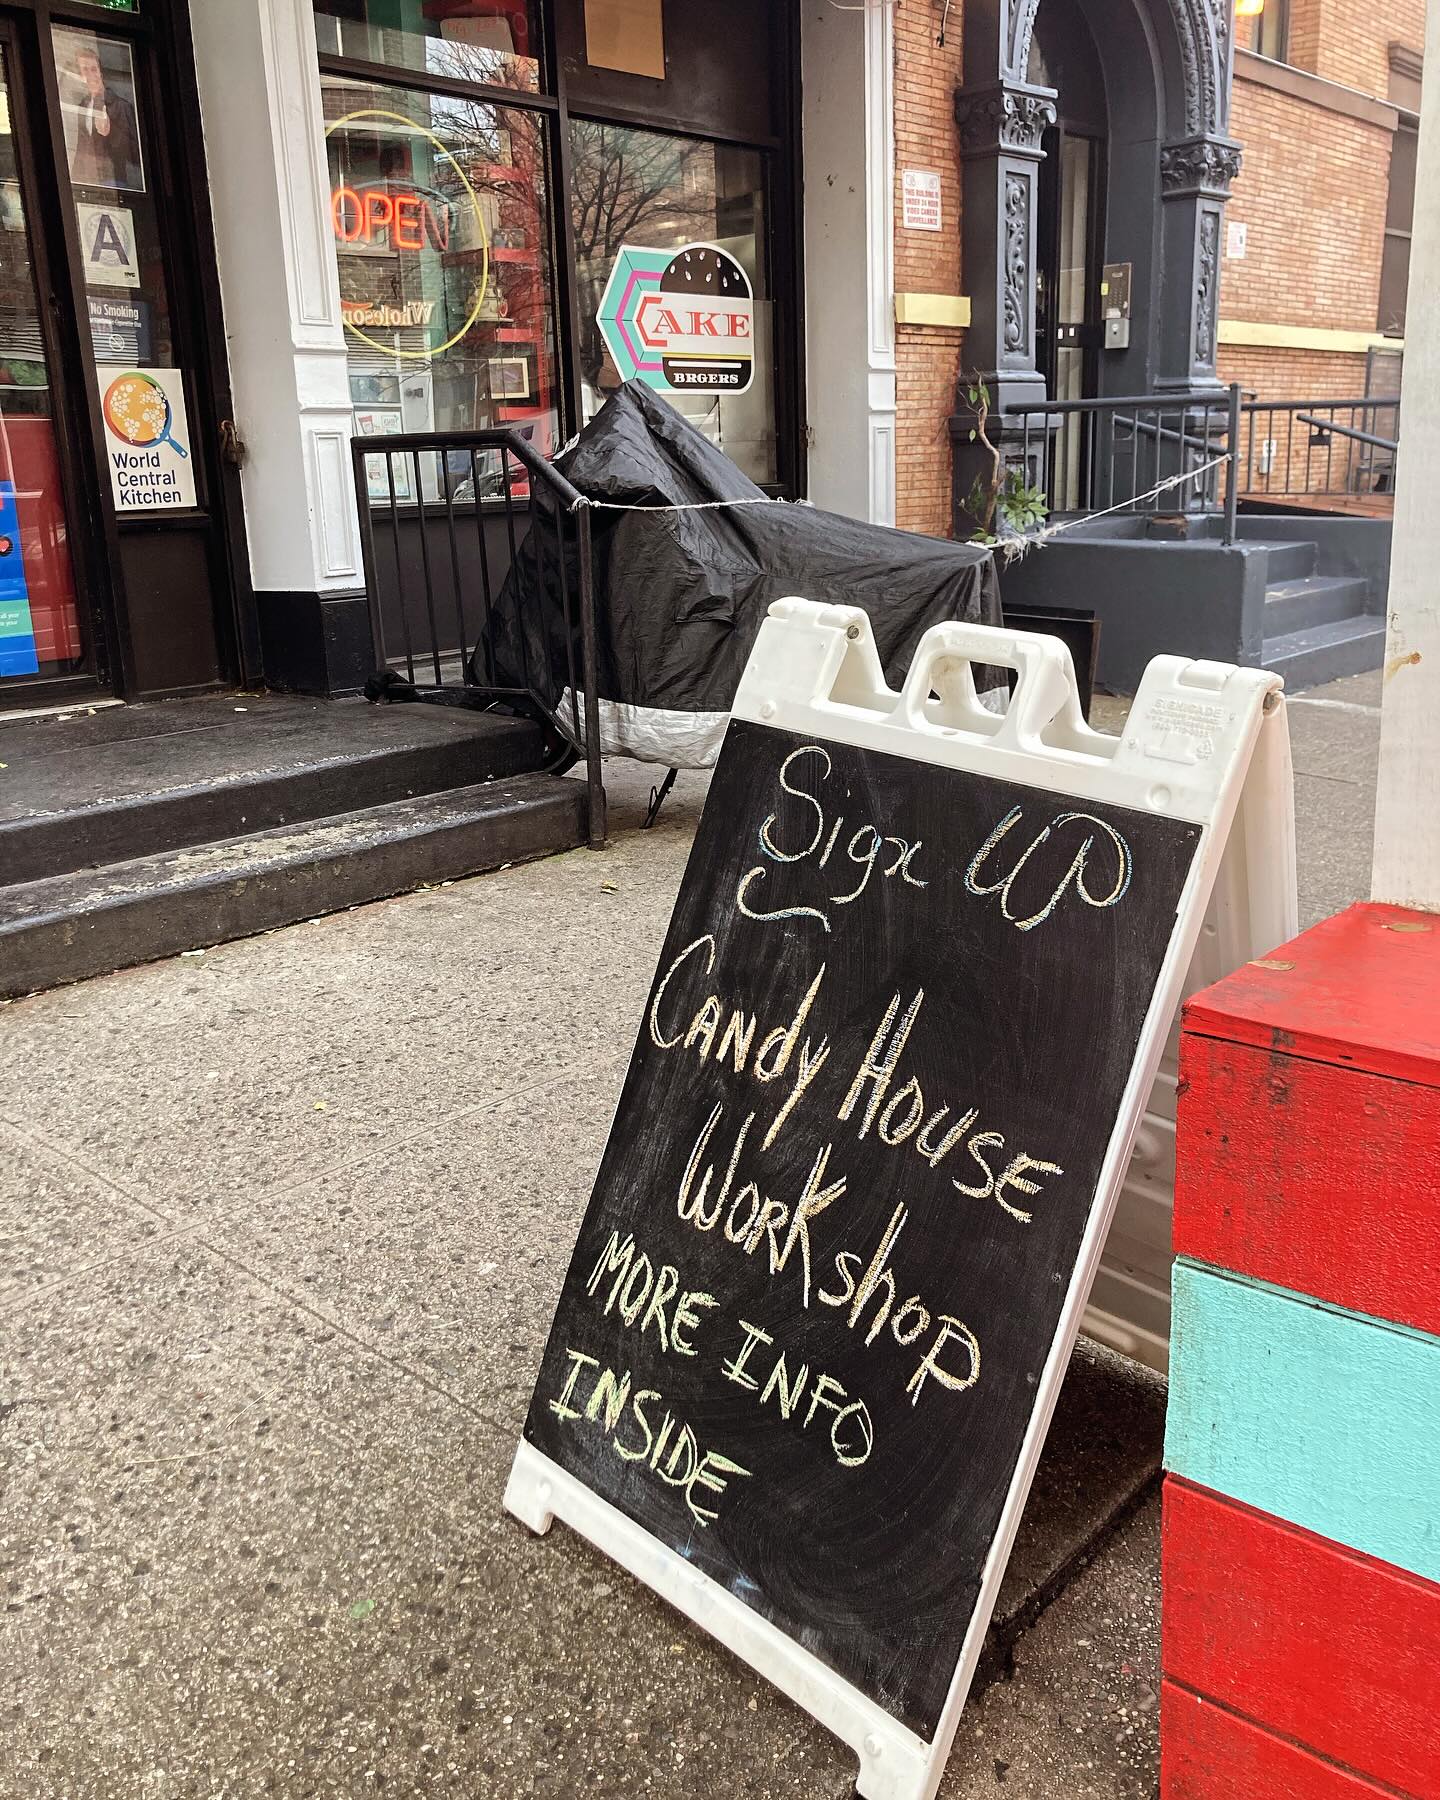 OPEN
Wholesom
A
No Smoking
World
Central
Kitchen
CAKE
BRGERS
THIS BUILDING IS
UNDER 24 HOUR
VIDEO CAMERA
SURVEILLANCE
SIGNICADE
Sign UP
CANdy HOUSE
WORKshop
MORE INFO
INSIDE